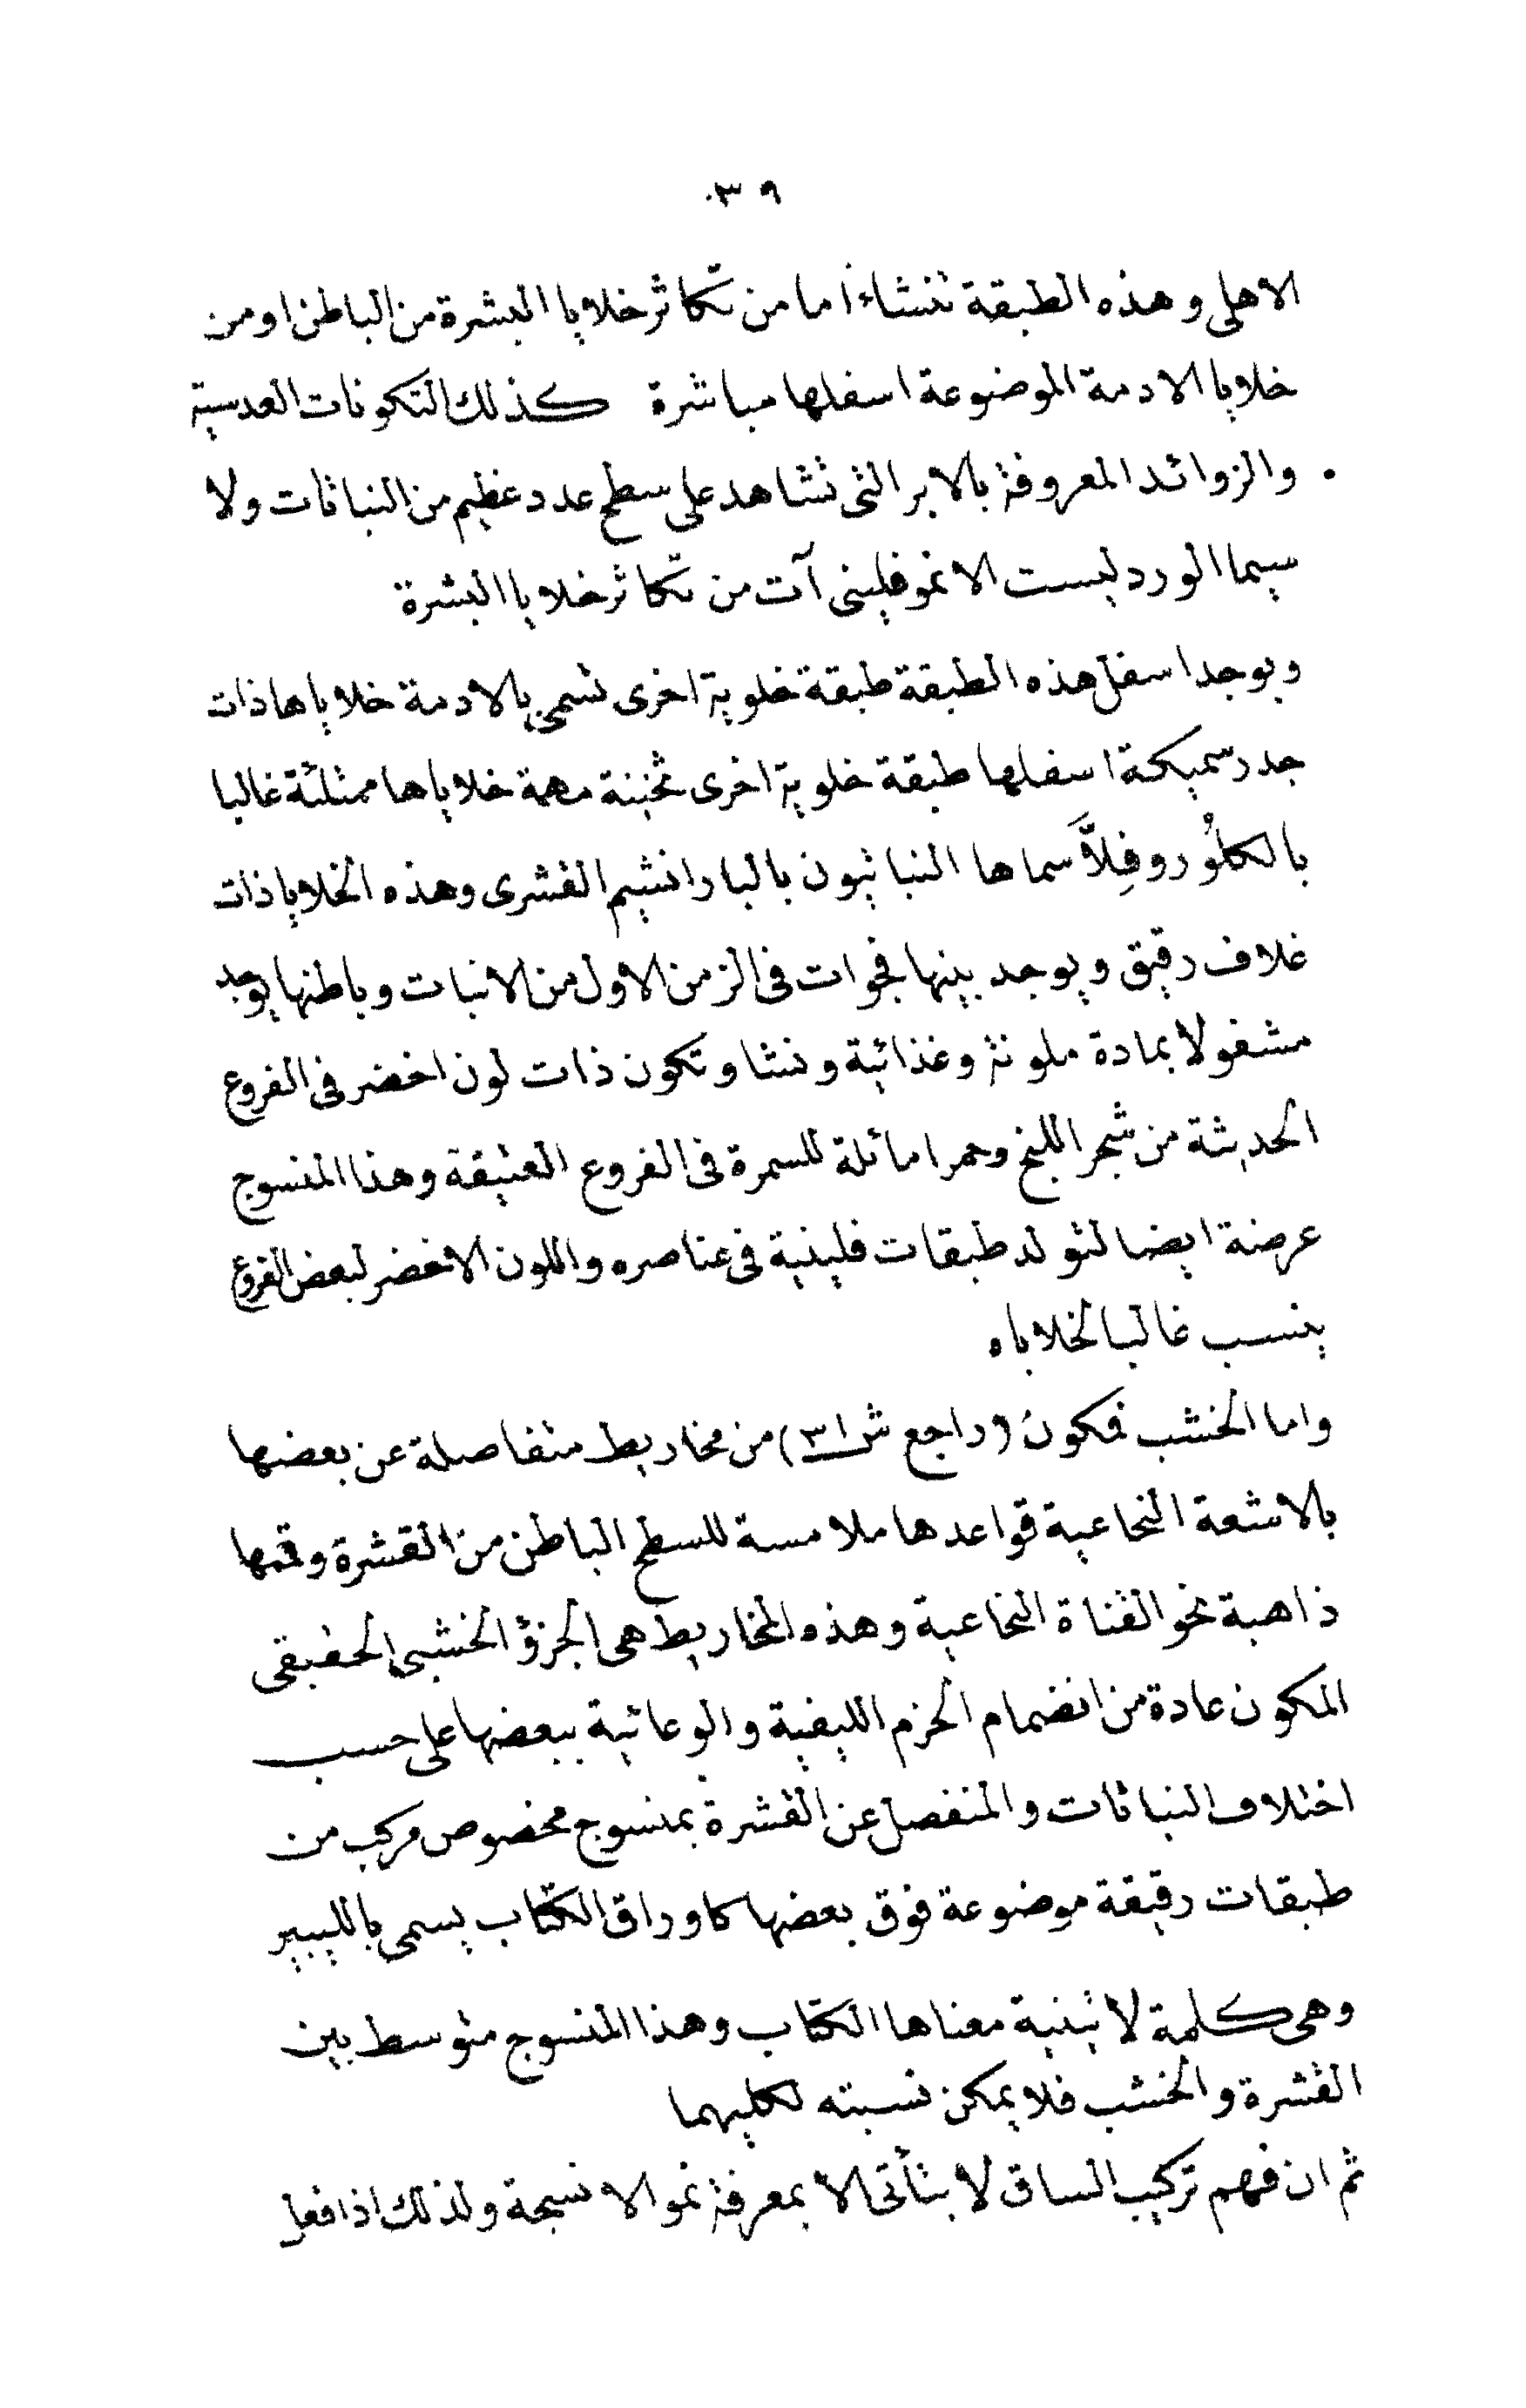 ٣٩
الاهلى وهذه الطبقة تنشاء اما من تكاثر خلايا البشرة من الباطن او من
خلايا الادمة الموضوعة اسفلها مباشرة كذلك التكونات العدسية
والزوائد المعروفة بالابر التى تشاهد على سطح عدد عظيم من النباتات ولا
سيما الورد ليست الا نمو فلينى آت من تكاثر خلايا البشرة
ويوجد اسفل هذه الطبقة طبقة خلوية اخرى تسمى بالادمة خلاياها ذات
جدر سميكة اسفلها طبقة خلوية اخرى ثخينة مهمة خلاياها ممتلئة غالبا
بالكلُوروفِلاَّ سماها النباتيون بالبارانشيم القشرى وهذه الخلايا ذات
غلاف رقيق ويوجد بينها فجوات فى الزمن الاول من الانبات وباطنها يوجد
مشغولا بمادة ملونة وغذائية ونشا وتكون ذات لون اخضر فى الفروع
الحديثة من شجر اللبخ وحمرا مائلة للسمرة فى الفروع العتيقة وهذا المنسوج
عرضة ايضا لتولد طبقات فلينية فى عناصره واللون الاخضر لبعض الفروع
ينسب غالبا لخلاياه
واما الخشب فمكون (راجع ش ٣١) من مخاريط متفاصلة عن بعضها
بالاشعة النخاعية قواعدها ملامسة للسطح الباطن من القشرة وقمها
ذاهبة نحو القناة النخاعية وهذه المخاريط هى الجزؤ الخشبى الحقيقى
المكون عادة من انضمام الحزم الليفية والوعائية ببعضها على حسب
اختلاف النباتات والمنفصل عن القشرة بمنسوج مخصوص مركب من
طبقات رقيقة موضوعة فوق بعضها كاوراق الكتاب يسمى بالليبير
وهى كلمة لاتينية معناها الكتاب وهذا المنسوج متوسط بين
القشرة والخشب فلا يمكن نسبته لكليهما
ثم ان فهم تركيب الساق لا يتأتى الا بمعرفة نمو الانسجة ولذلك اذا فعل